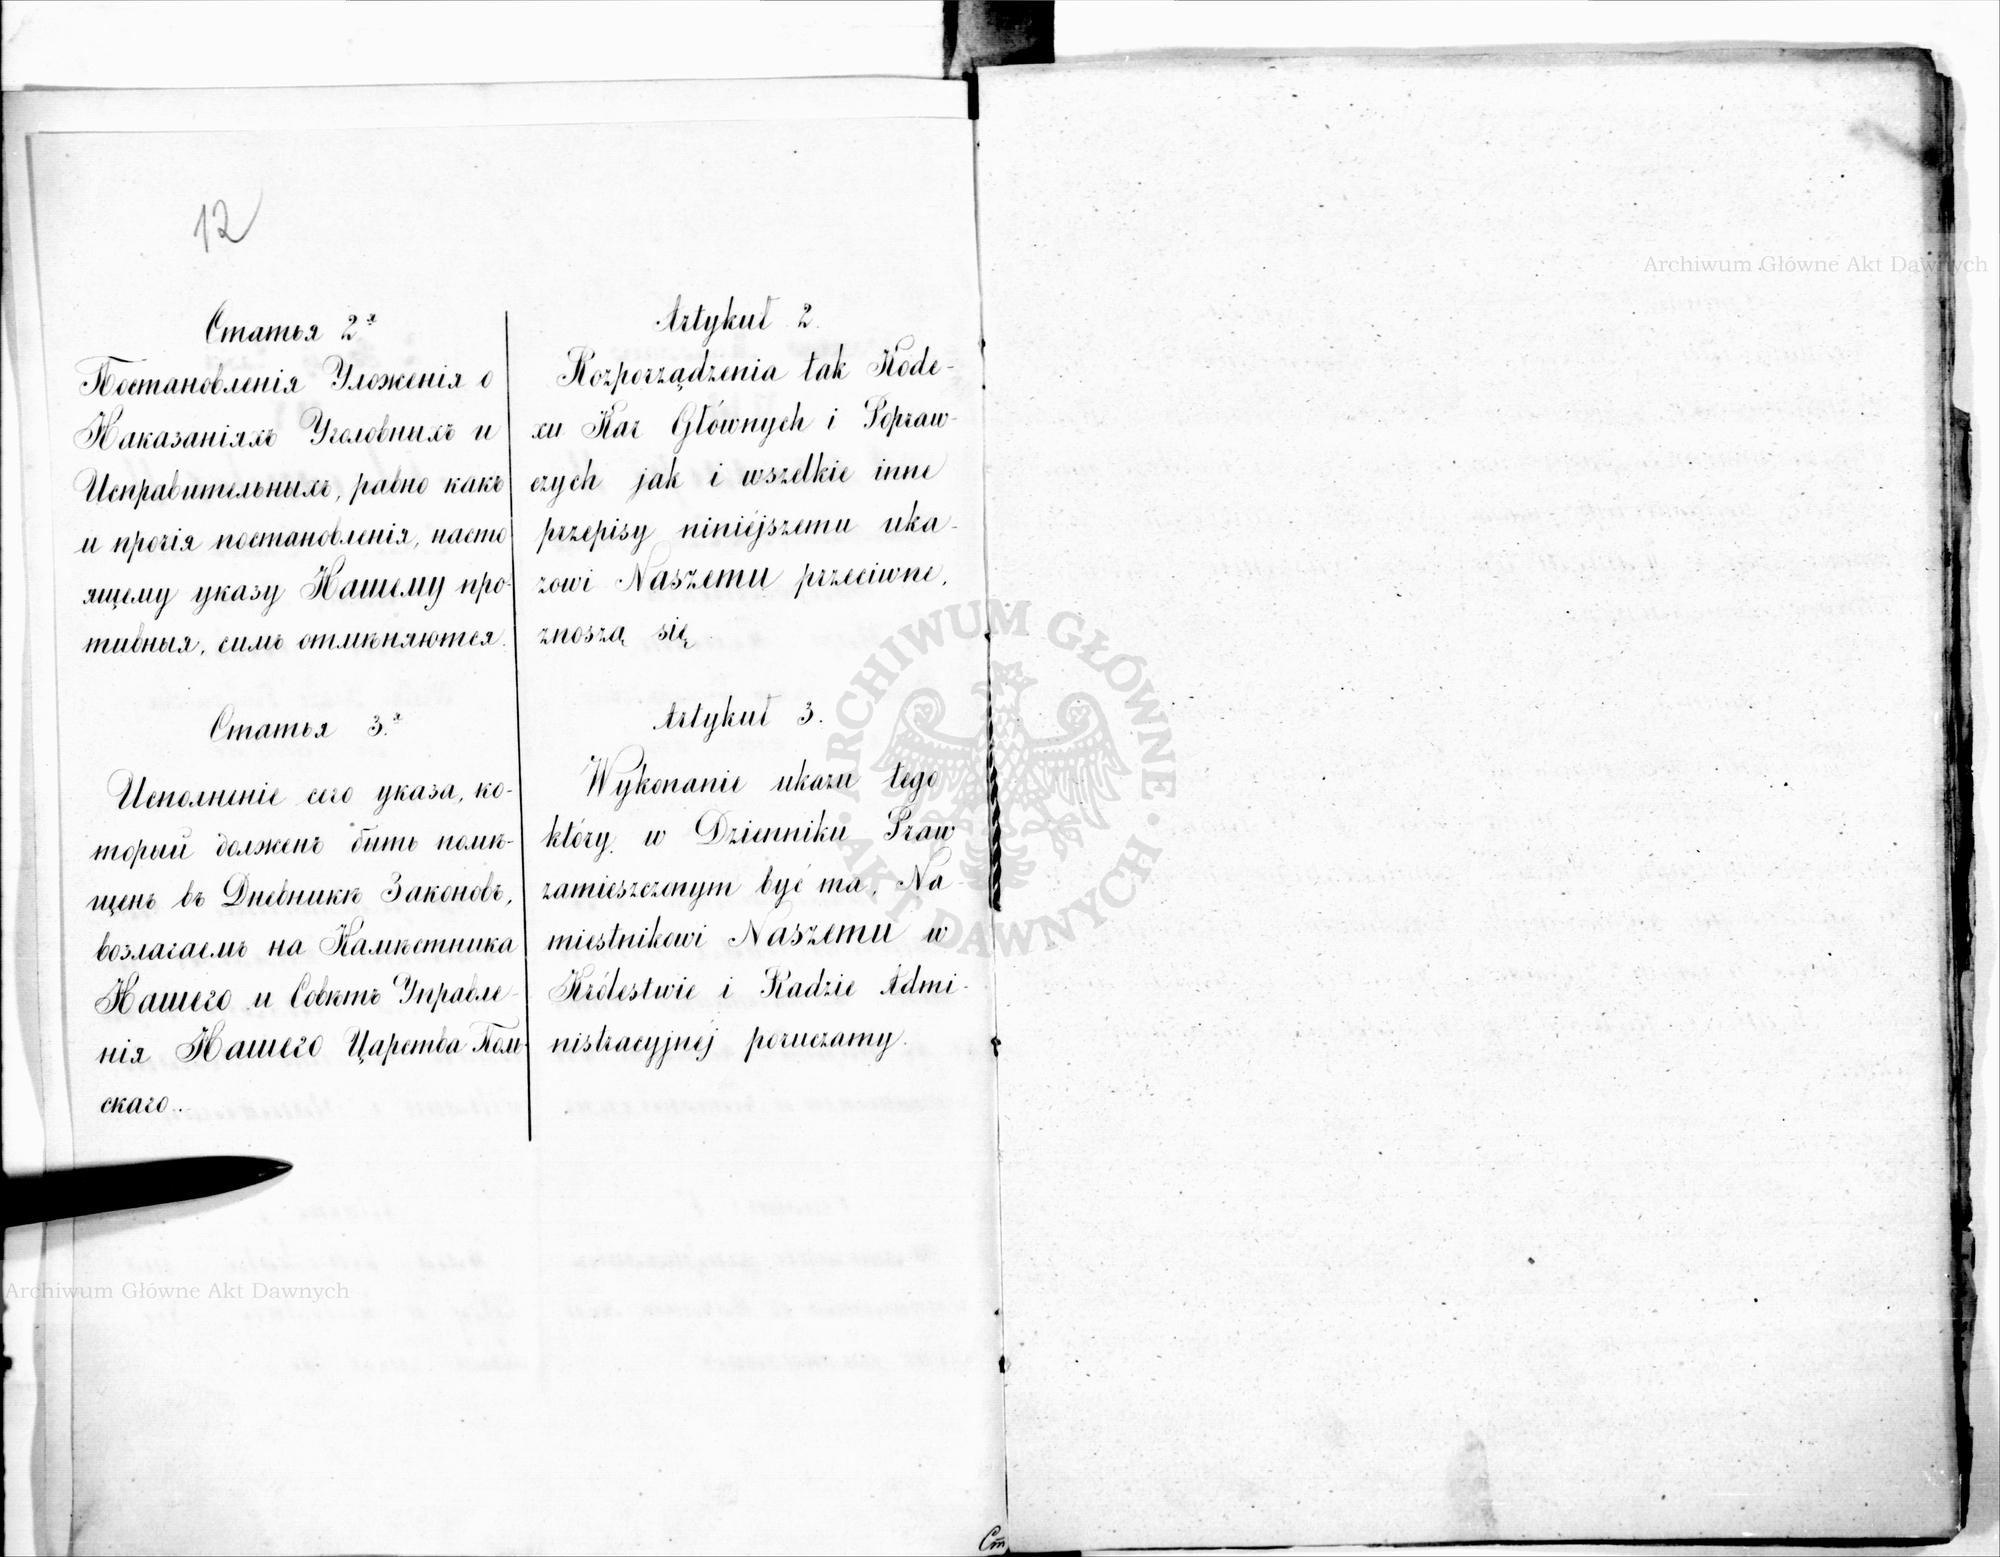 12
Статья 2я
Постановленія Уложенія о
Наказаніяхъ Уголовныхъ и
Исправительныхъ, равно какъ
и прочія постановленія, насто
ящему указу Нашему про-
тивныя, симъ отмѣняются.
Статья 3.я
Исполненіе сего указа, ко-
торый долженъ быть помѣ-
щенъ въ Дневникѣ Законовъ,
возлагаемъ на Намѣстника
Нашего и Совѣтъ Управле-
нія Нашего Царства Поль-
скаго.
Artykuł 2.
Rozporządzenia tak Kode-
xu Kar Głównych i Popraw-
czych jak i wszelkie inne
przepisy niniéjszemu uka-
zowi Naszemu przeciwne,
znoszą się.
Artykuł 3.
Wykonanie ukazu tego
który w Dzienniku Praw
zamieszczonym być ma, Na-
miestnikowi Naszemu w
Królestwie i Radzie Admi-
nistracyjnéj poruczamy.
Archiwum Główne Akt Dawnych
Archiwum Główne Akt Dawnych
ARCHIWUM GŁÓWNE
AKT DAWNYCH